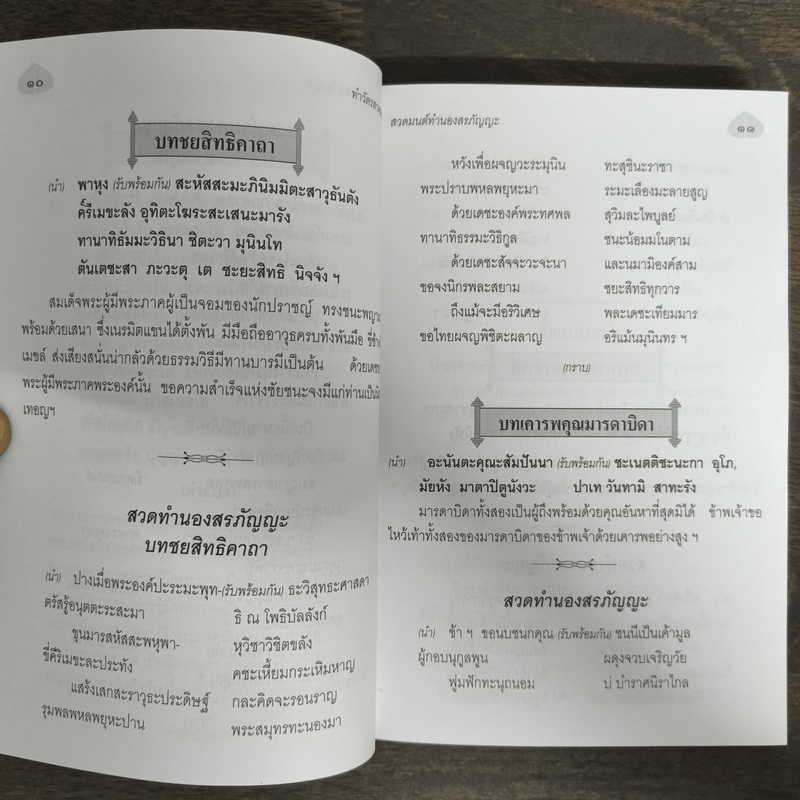 ๑๐
ทำวัตร
บทชยสิทธิคาถา
(นำ) พาหุง (รับพร้อมกัน) สะหัสสะมะภินิมมิตะสาวุธันตัง
ครีเมขะลัง อุทิตะโฆระสะเสนะมารัง
ทานาทิธัมมะวิธินา ชิตะวา มุนินโท
ตันเตชะสา ภะวะตุ เต ชะยะสิทธิ นิจจัง ฯ
สมเด็จพระผู้มีพระภาคผู้เป็นจอมของนักปราชญ์ ทรงชนะพญา
พร้อมด้วยเสนา ซึ่งเนรมิตแขนได้ตั้งพัน มีมือถืออาวุธครบทั้งพันมือ
เมขล์ ส่งเสียงสนั่นน่ากลัวด้วยธรรมวิธีมีทานบารมีเป็นต้น ด้วยเดช
พระผู้มีพระภาคพระองค์นั้น ขอความสำเร็จแห่งชัยชนะจงมีแก่ท่านเป็น
เทอญฯ
สวดทำนองสรภัญญะ
บทชยสิทธิคาถา
(นำ) ปางเมื่อพระองค์ปะระมะพุท-(รับพร้อมกัน) ธะวิสุทธะศาสดา
ตรัสรู้อนุตตะระสะมา ธิ ณ โพธิบัลลังก์
ขุนมารสหัสสะพหุพา- หุวิชาวิชิตขลัง
ขี่คีริเมขะละประทัง คชะเหี้ยมกระเหิมหาญ
แสร้งเสกสะราวุธะประดิษฐ์ กละคิดจะรอนราญ
รุมพลพหลพยุหะปาน พระสมุทรทะนองมา
สวดมนต์ทำนองสรภัญญะ
๑๑
หวังเพื่อผจญวะระมุนิน ทะสุชินะราชา
พระปราบพหลพยุหะมา ระมะเลืองมะลายสูญ
ด้วยเดชะองค์พระทศพล สุวิมละไพบูลย์
ทานาทิธรรมะวิธิกูล ชนะน้อมมโนตาม
ด้วยเดชะสัจจะวะจะนา และนมามิองค์สาม
ขอจงนิกรพละสยาม ชยะสิทธิทุกวาร
ถึงแม้จะมีอริวิเศษ พละเดชะเทียมมาร
ขอไทยผจญพิชิตะผลาญ อริแม้นมุนินทร ฯ
(กราบ)
บทเคารพคุณมารดาบิดา
(นำ) อะนันตะคุณะสัมปันนา (รับพร้อมกัน) ชะเนตติชะนะกา อุโภ,
มัยหัง มาตาปิตูนังวะ ปาเท วันทามิ สาทะรัง
มารดาบิดาทั้งสองเป็นผู้ถึงพร้อมด้วยคุณอันหาที่สุดมิได้ ข้าพเจ้าขอ
ไหว้เท้าทั้งสองของมารดาบิดาของข้าพเจ้าด้วยเคารพอย่างสูง ฯ
สวดทำนองสรภัญญะ
(นำ) ข้า ฯ ขอนบชนกคุณ (รับพร้อมกัน) ชนนีเป็นเค้ามูล
ผู้กอบนุกูลพูน ผดุงจวบเจริญวัย
ฟูมฟักทะนุถนอม บ่ บำราศนิราไกล